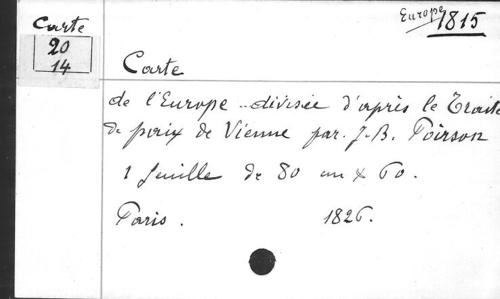 Carte
20
14
Europe 1815
Carte
de l'Europe divisée d'après le Traité
de paix de Vienne par. J.-B. Poirson
1 feuille de 80 cm x 60.
Paris. 1826.